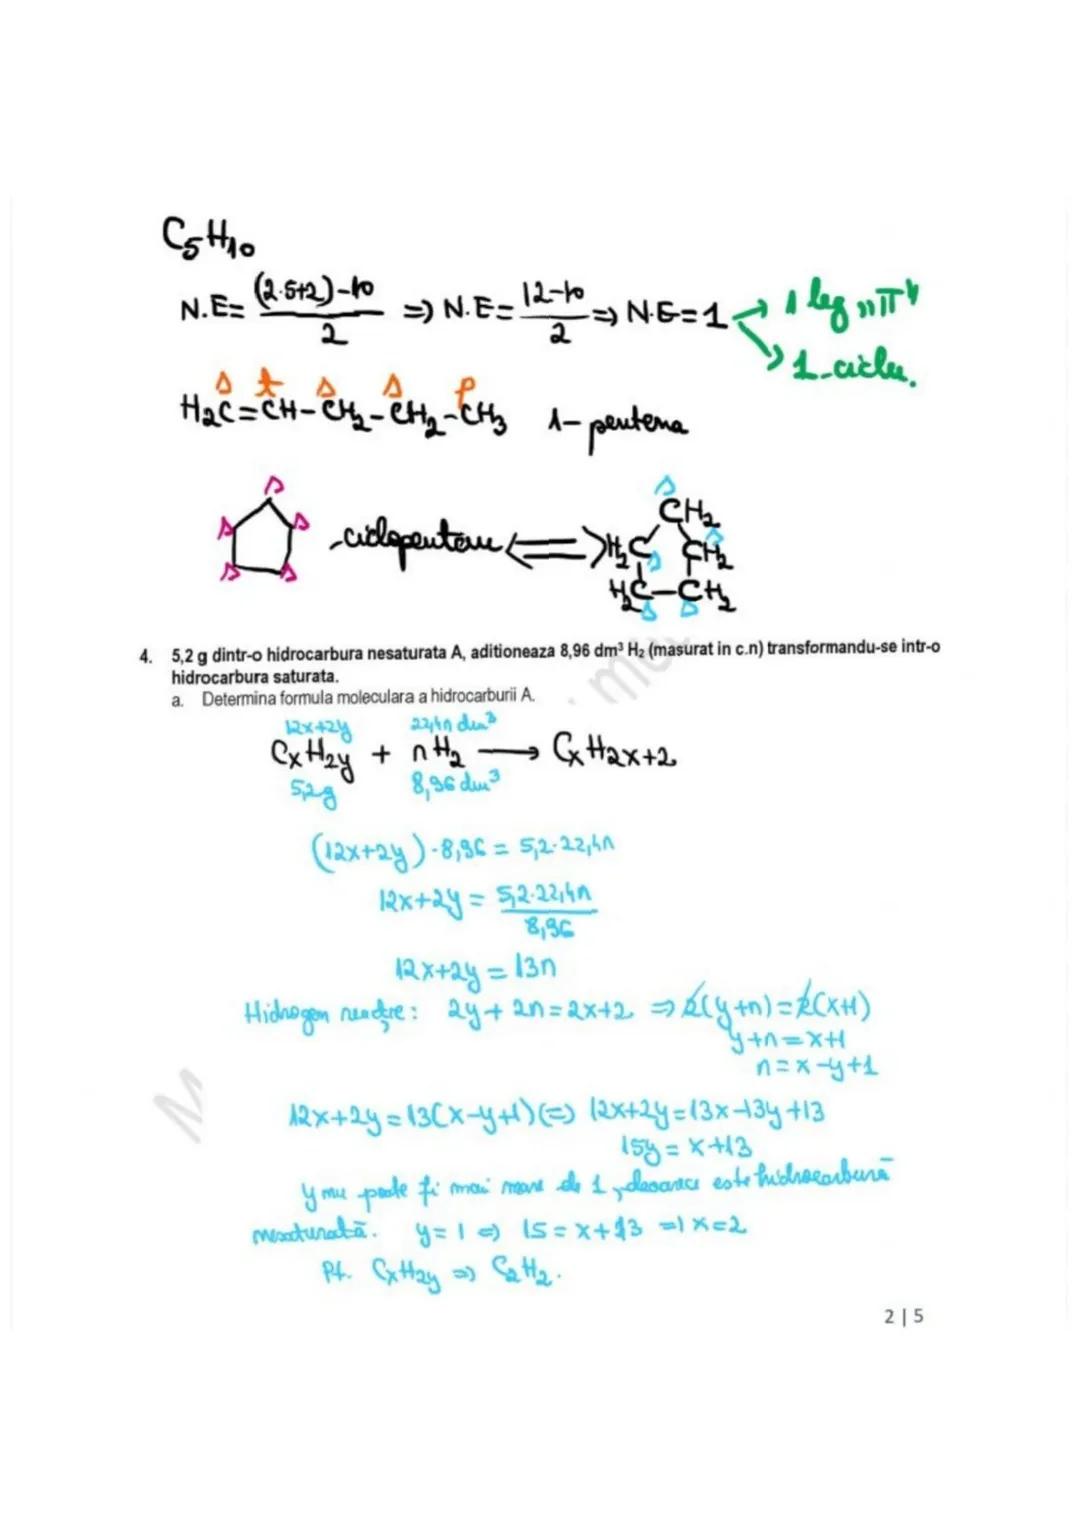 C5H10
N.E= (2·5+2)-10 / 2 => N.E= 12-10 / 2 => N.E=1 → 1 leg „π"
→ 1-ciclu.
s t s s p
H2C=CH-CH2-CH2-CH3 1-pentena
s
s s -ciclopentan <=> H2C CH2 CH2
s s H2C-CH2
4. 5,2 g dintr-o hidrocarbura nesaturata A, aditioneaza 8,96 dm³ H2 (masurat in c.n) transformandu-se intr-o
hidrocarbura saturata.
a. Determina formula moleculara a hidrocarburii A.
12x+2y 22,4n dm³
CxH2y + nH2 → CxH2x+2
5,2g 8,96 dm³
(12x+2y)·8,96 = 5,2·22,4n
12x+2y = 5,2·22,4n / 8,96
12x+2y = 13n
Hidrogen reacție: 2y+2n=2x+2 => 2(y+n)=2(x+1)
y+n=x+1
n=x-y+1
12x+2y=13(x-y+1) (=) 12x+2y=13x-13y+13
15y=x+13
y nu poate fi mai mare de 1, deoarece este hidrocarbură
nesaturată. y=1 => 15=x+13 => x=2
Pt. CxH2y => C2H2.
2 | 5